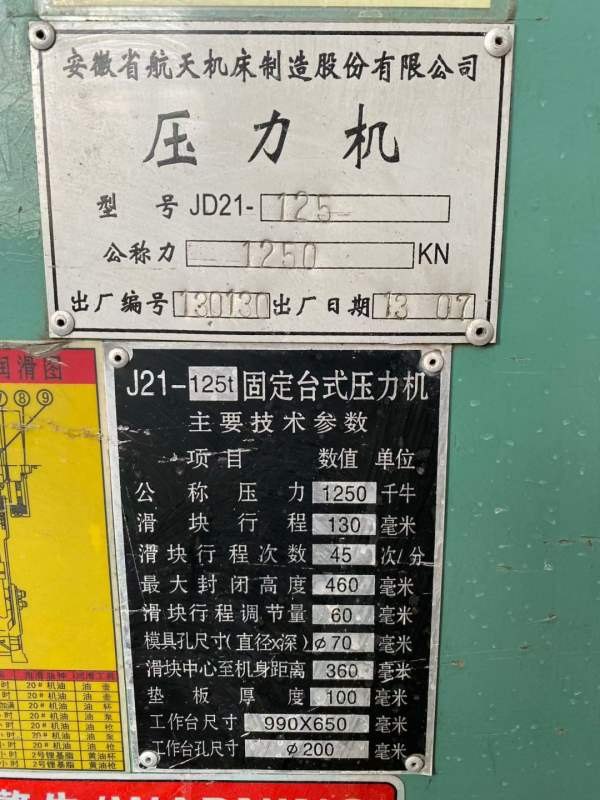 安徽省航天机床制造股份有限公司
压力机
型号 JD21-125
公称力 1250 KN
出厂编号 130130 出厂日期 13 07
J21-125t 固定台式压力机
主要技术参数
项目 数值 单位
公称压力 1250 千牛
滑块行程 130 毫米
滑块行程次数 45 次/分
最大封闭高度 460 毫米
滑块行程调节量 60 毫米
模具孔尺寸(直径x深) φ70 毫米
滑块中心至机身距离 360 毫米
垫板厚度 100 毫米
工作台尺寸 990X650 毫米
工作台孔尺寸 φ200 毫米
润滑图
⑦⑧⑨
20#机油 油壶
20#机油 油壶
20#机油 油杯
20#机油 油泵
20#机油 油枪
20#机油 油泵
20#机油 油枪
2号锂基脂 黄油杯
2号锂基脂 黄油枪